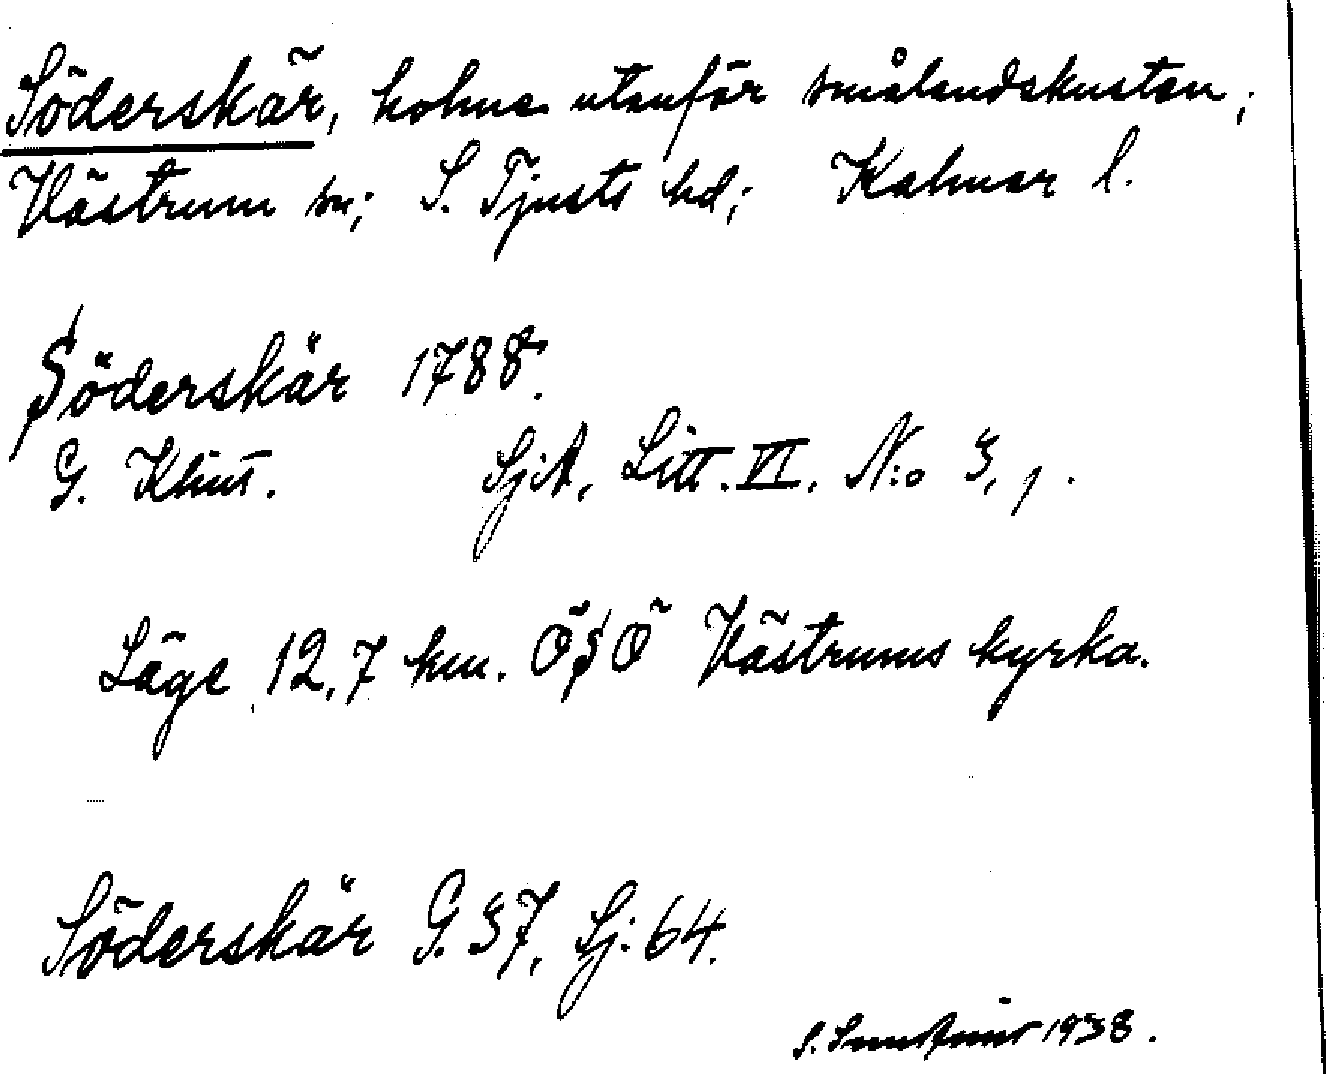 Söderskär, holme utanför smålandskusten;
Västrum sn; S. Tjusts hd; Kalmar l.
Söderskär 1788.
G. Klint. SjA, Litt. VI. N:o 3, 1.
Läge 12,7 km. ÖSÖ Västrums kyrka.
Söderskär G. 37, Sj: 64.
S. 1938.